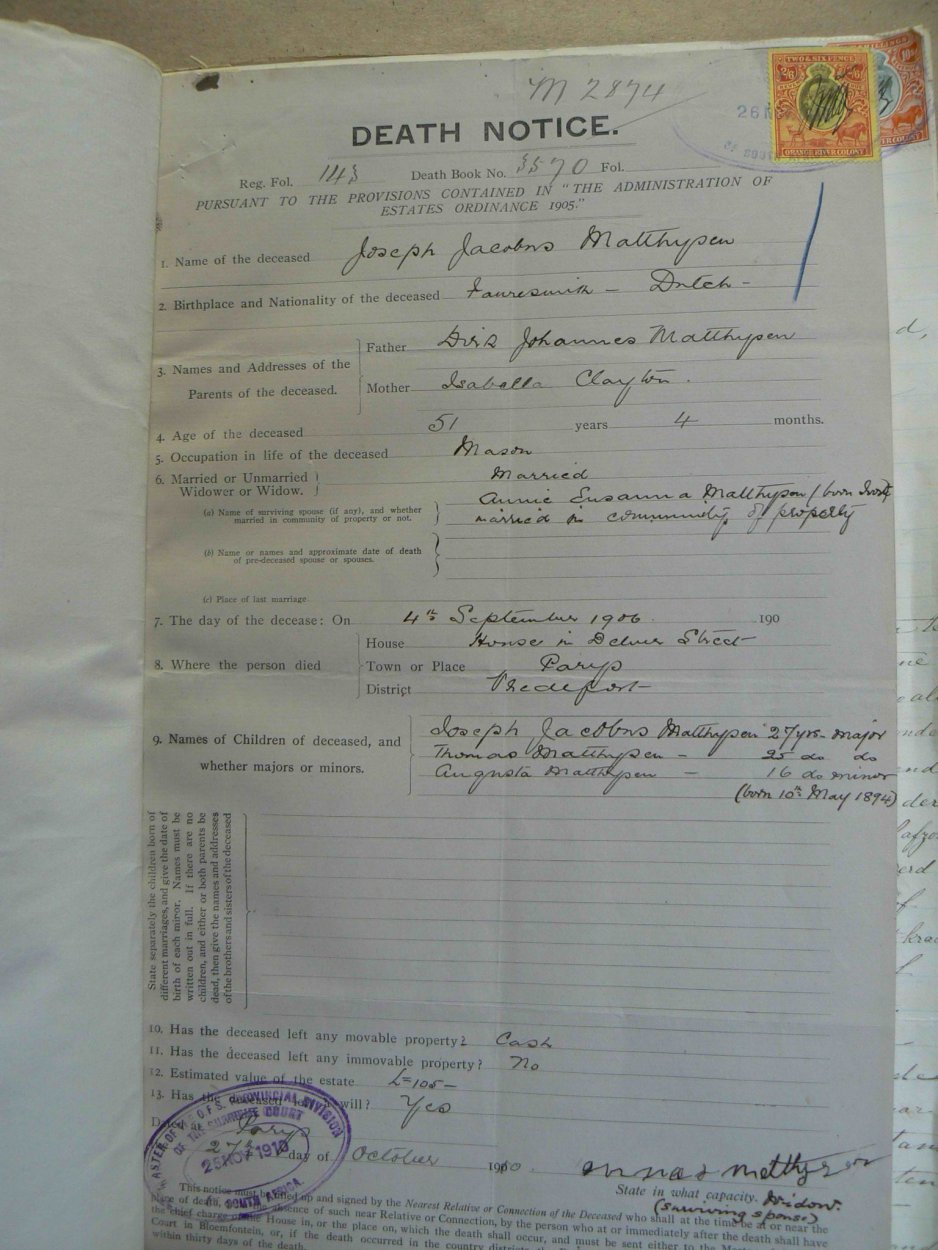 M 2874
26
TWO & SIX PENCE
2/6
ORANGE RIVER COLONY
10s
DEATH NOTICE.
Reg. Fol. 143 Death Book No. 3570 Fol.
PURSUANT TO THE PROVISIONS CONTAINED IN "THE ADMINISTRATION OF
ESTATES ORDINANCE 1905."
1. Name of the deceased Joseph Jacobus Matthysen
2. Birthplace and Nationality of the deceased Fauresmith - Dutch -
3. Names and Addresses of the Parents of the deceased.
Father Dirk Johannes Matthysen
Mother Isabella Clayton.
4. Age of the deceased 51 years 4 months.
5. Occupation in life of the deceased Mason
6. Married or Unmarried Married
Widower or Widow.
(a) Name of surviving spouse (if any), and whether married in community of property or not.
Annie Susanna Matthysen (born
married in community of property
(b) Name or names and approximate date of death
of pre-deceased spouse or spouses.
(c) Place of last marriage
7. The day of the decease: On 4th September 1906 190
8. Where the person died
House House in Street
Town or Place Parys
District Vredefort
9. Names of Children of deceased, and
whether majors or minors.
Joseph Jacobus Matthysen 27 yrs - major
Thomas Matthysen - 25 do do
Augusta Matthysen - 16 do minor
(born 10th May 1894)
State separately the children born of
different marriages, and give the date of
birth of each minor. Names must be
written out in full. If there are no
children, and either or both parents be
dead, then give the names and addresses
of the brothers and sisters of the deceased
10. Has the deceased left any movable property? Cash
11. Has the deceased left any immovable property? No
12. Estimated value of the estate £=105-
13. Has the deceased left a will? Yes
Dated at Parys
27th day of October 1910.
MASTER OF THE O.F.S. PROVINCIAL DIVISION
OF THE SUPREME COURT
25 NOV 1910
OF SOUTH AFRICA
Matthysen
State in what capacity. Widow.
(surviving spouse)
This notice must be filled up and signed by the Nearest Relative or Connection of the Deceased who shall at the time be at or near the
place of death, or in the absence of such near Relative or Connection, by the person who at or immediately after the death shall have
the chief charge of the House in, or the place on, which the death shall occur, and must be sent either to the
Court in Bloemfontein, or, if the death occurred in the country districts,
within thirty days of the death.